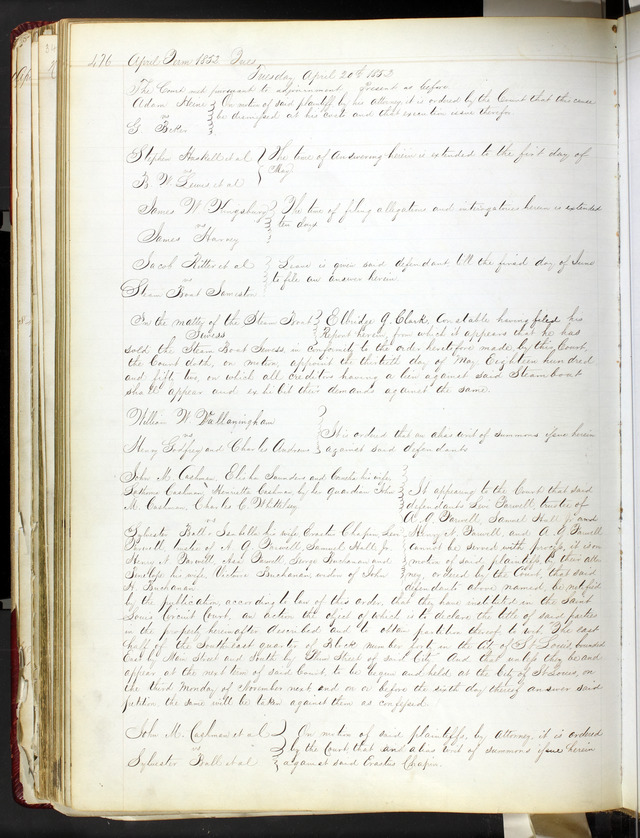 476 April Term 1852 Tues
Tuesday April 20th 1852
The Court met pursuant to adjournment, Present as before
Adam Heine On motion of said plaintiff by his attorney it is ordered by the Court that this cause
vs be dismissed at his costs and that execution issue therefor
G. Baker
Stephen Haskell et al The time of answering herein is extended to the first day of
vs May
B W Lewis et al
James W Kingsbury The time of filing allegations and interrogatories herein is extended
vs ten days
James Harvey
Jacob Ritter et al Leave is given said defendant till the first day of June
vs to file an answer herein
Steam Boat
In the matter of the Steam Boat Elbridge G. Clark, Constable having filed his
Report herein from which it appears that he has
sold the Steam Boat in conformity to the order heretofore made by this Court,
the Court doth, on motion, appoint the thirtieth day of May Eighteen hundred
and fifty two, on which all creditors having a lien against said Steamboat
shall appear and exhibit their demands against the same.
William W
vs It is ordered that an alias writ of summons issue herein
Henry Godfrey and Charles Andrews against said defendants
John M. Cashman, Elisha Saunders and his wife
Cashman, Henrietta Cashman by her guardian John It appearing to the Court that said
M. Cashman, Charles C. Whittlesey defendants Levi Farwell, trustee of
vs A. G. Farwell, Samuel Hall Jr and
Sylvester Ball, Isabella his wife Erastus Chapin, Levi Henry N. Farwell and A. G. Farwell
Farwell trustee of A. G. Farwell, Samuel Hall Jr. cannot be served with process, it is on
Henry N. Farwell, Farwell George Buchanan and motion of said plaintiffs by their attor
Penelope his wife, Buchanan widow of John ney, ordered by the Court, that said
Buchanan defendants above named, be notified
by the publication, according to law of this order, that they have instituted in the Saint
Louis Circuit Court, an action the object of which is to declare the title of said parties
in the property hereinafter described and to obtain partition thereof to wit. The east
half of the Southeast quarter of Block number in the City of St Louis, bounded
East by Main Street and South by Street of said City. And that unless they be and
appear at the next term of said Court, to be begun and held at the City of St Louis, on
the third Monday of November next and on or before the sixth day thereof answer said
petition the same will be taken against them as confessed.
John M. Cashman et al On motion of said plaintiffs, by attorney, it is ordered
vs by the Court that and alias writ of summons issue herein
Sylvester Ball et al against said Erastus Chapin.